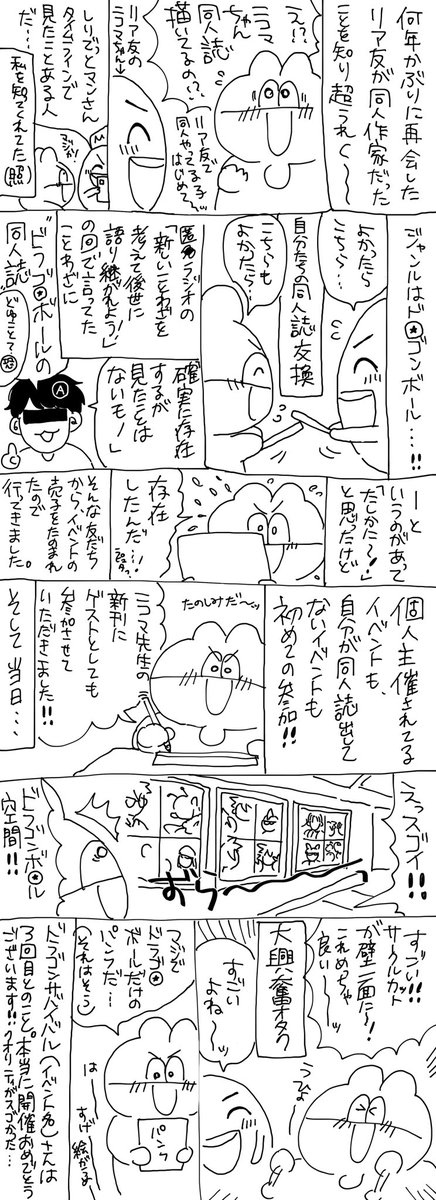 何年かぶりに再会した
リア友が同人作家だった
ことを知り超うれしく〜
え!?
ミラマ
ちゃん
同人誌
描いてるの!?
リア友で
同人やってる子
はじめて
リア友の
ミラマちゃん→
しりでっとマンさん
タイムラインで
見たことある人
だ…
マジか!
私を知ってくれてた
(照)
ジャンルはド✪ゴンボール…!!
よかったら
こちら…
こちらも
よかったら…
自分たちの同人誌交換
匿名ラジオの
「新しいことわざを
考えて後世に
語り継がれよう!」
の回で言ってた
ことわざに
"ドラゴ✪ボールの
同人誌"
どゆことて
確実に存在
するが
見たことは
ないも!」
A
ーと
いうのがあって
「たしかた〜!」
と思ったけど
存在
したんだ…!
そんな友だち
からイベントの
売子をたのまれ
たので
行ってきました。
個人主催されてる
イベントも、
自分が同人誌出して
ないイベントも
初めての参加!!
たのしみだ〜ッ
ミラマ先生の
新刊に
ゲストとしても
参加させて
いただきました!!
そして当日…
えっスゴイ!!
おら〜
ドラゴンボール
空間!!
すごい!!
サークルカット
が壁一面だ〜!
これめっちゃ
良い〜
うひょ〜
大興奮オタク
すごい
よね〜
マジで
ドラゴ✪
ボールだけの
パンフだ…
(それはそう)
パンフ
は〜
すげ〜
絵がうま
ドラゴンサバイバル(イベント名)さんは
3回目とのこと。本当に開催おめでとう
ございます!!クオリティがスゴかった…